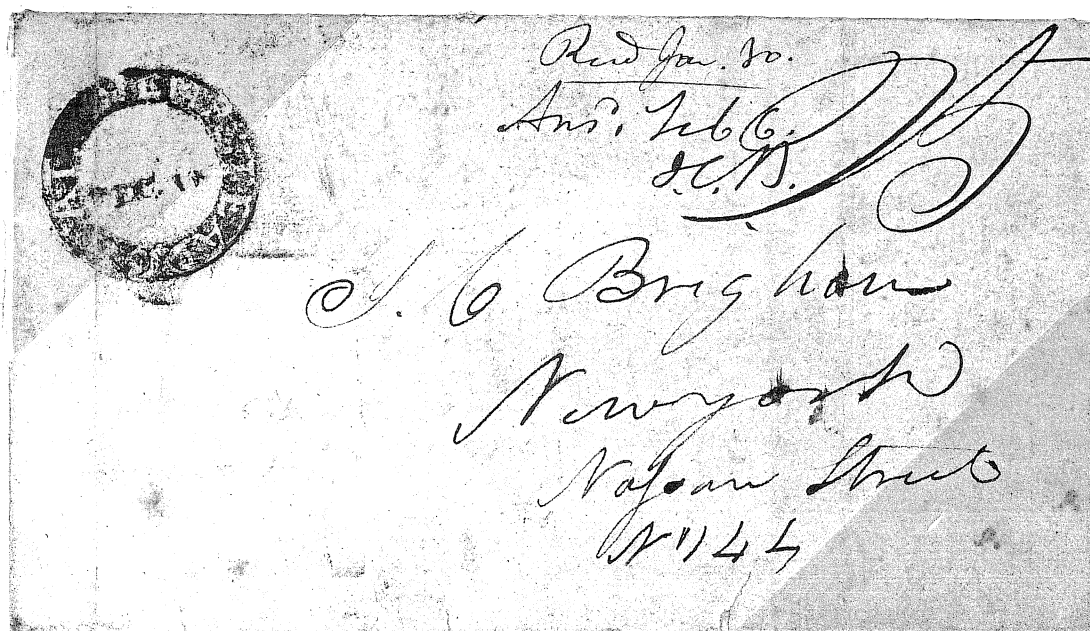 Recd Jan. 30.
Ansd. Feb 6.
J.C.B.
25
J. C Brigham
Newyork
Nassau Street
No 144
DEC.